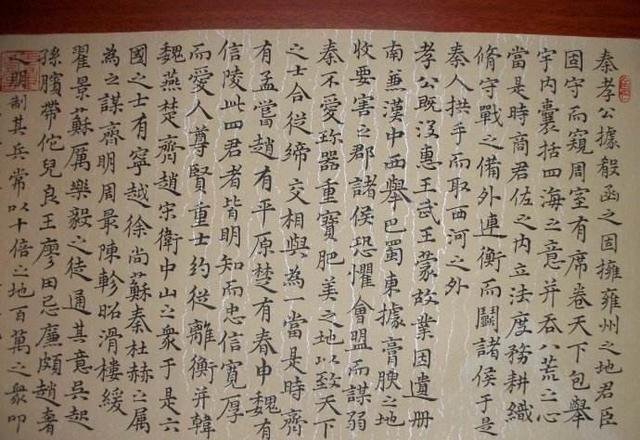 秦孝公據殽函之固擁雍州之地君臣
固守而窺周室有席卷天下包舉
宇內囊括四海之意并吞八荒之心
當是時商君佐之內立法度務耕織
脩守戰之備外連衡而鬭諸侯于是
秦人拱手而取西河之外
孝公既沒惠王武王蒙故業因遺冊
南兼漢中西舉巴蜀東據膏腴之地
收要害之郡諸侯恐懼會盟而謀弱
秦不愛珎器重寶肥美之地以致天下
之士合從締交相與為一當是時齊
有孟嘗趙有平原楚有春申魏有
信陵此四君者皆明知而忠信寬厚
而愛人尊賢重士約從離衡并韓
魏燕楚齊趙宋衛中山之衆于是六
國之士有寧越徐尚蘇秦杜赫之属
為之謀齊明周最陳軫昭滑樓緩
翟景蘇厲樂毅之徒通其意吳起
孫臏帶佗兒良王廖田忌廉頗趙奢
之朋制其兵常以十倍之地百萬之衆叩